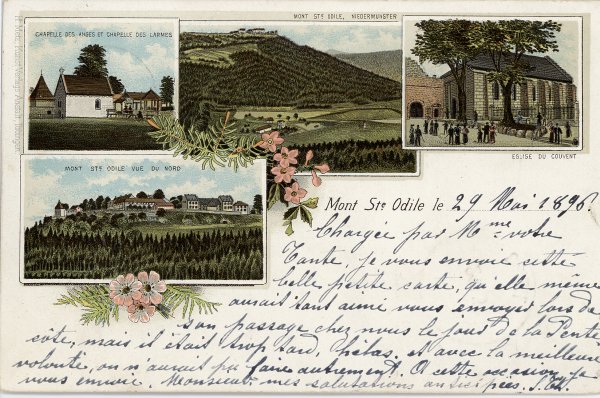 MONT STE ODILE, NIEDERMUNSTER
CHAPELLE DES ANGES ET CHAPELLE DES LARMES
EGLISE DU COUVENT
MONT STE ODILE VUE DU NORD
Mont Ste Odile le 29 Mai 1896.
Chargée par Mme votre
Tante, je vous envoie cette
belle petite carte, qu'elle même
aurait tant aimé vous envoyer lors de
son passage chez nous le jour de la Pente
côte, mais il était trop tard, hélas. et avec la meilleure
volonté, on n'aurait pu faire autrement. A cette occasion je
vous envoie, Monsieur mes salutations anticipées.